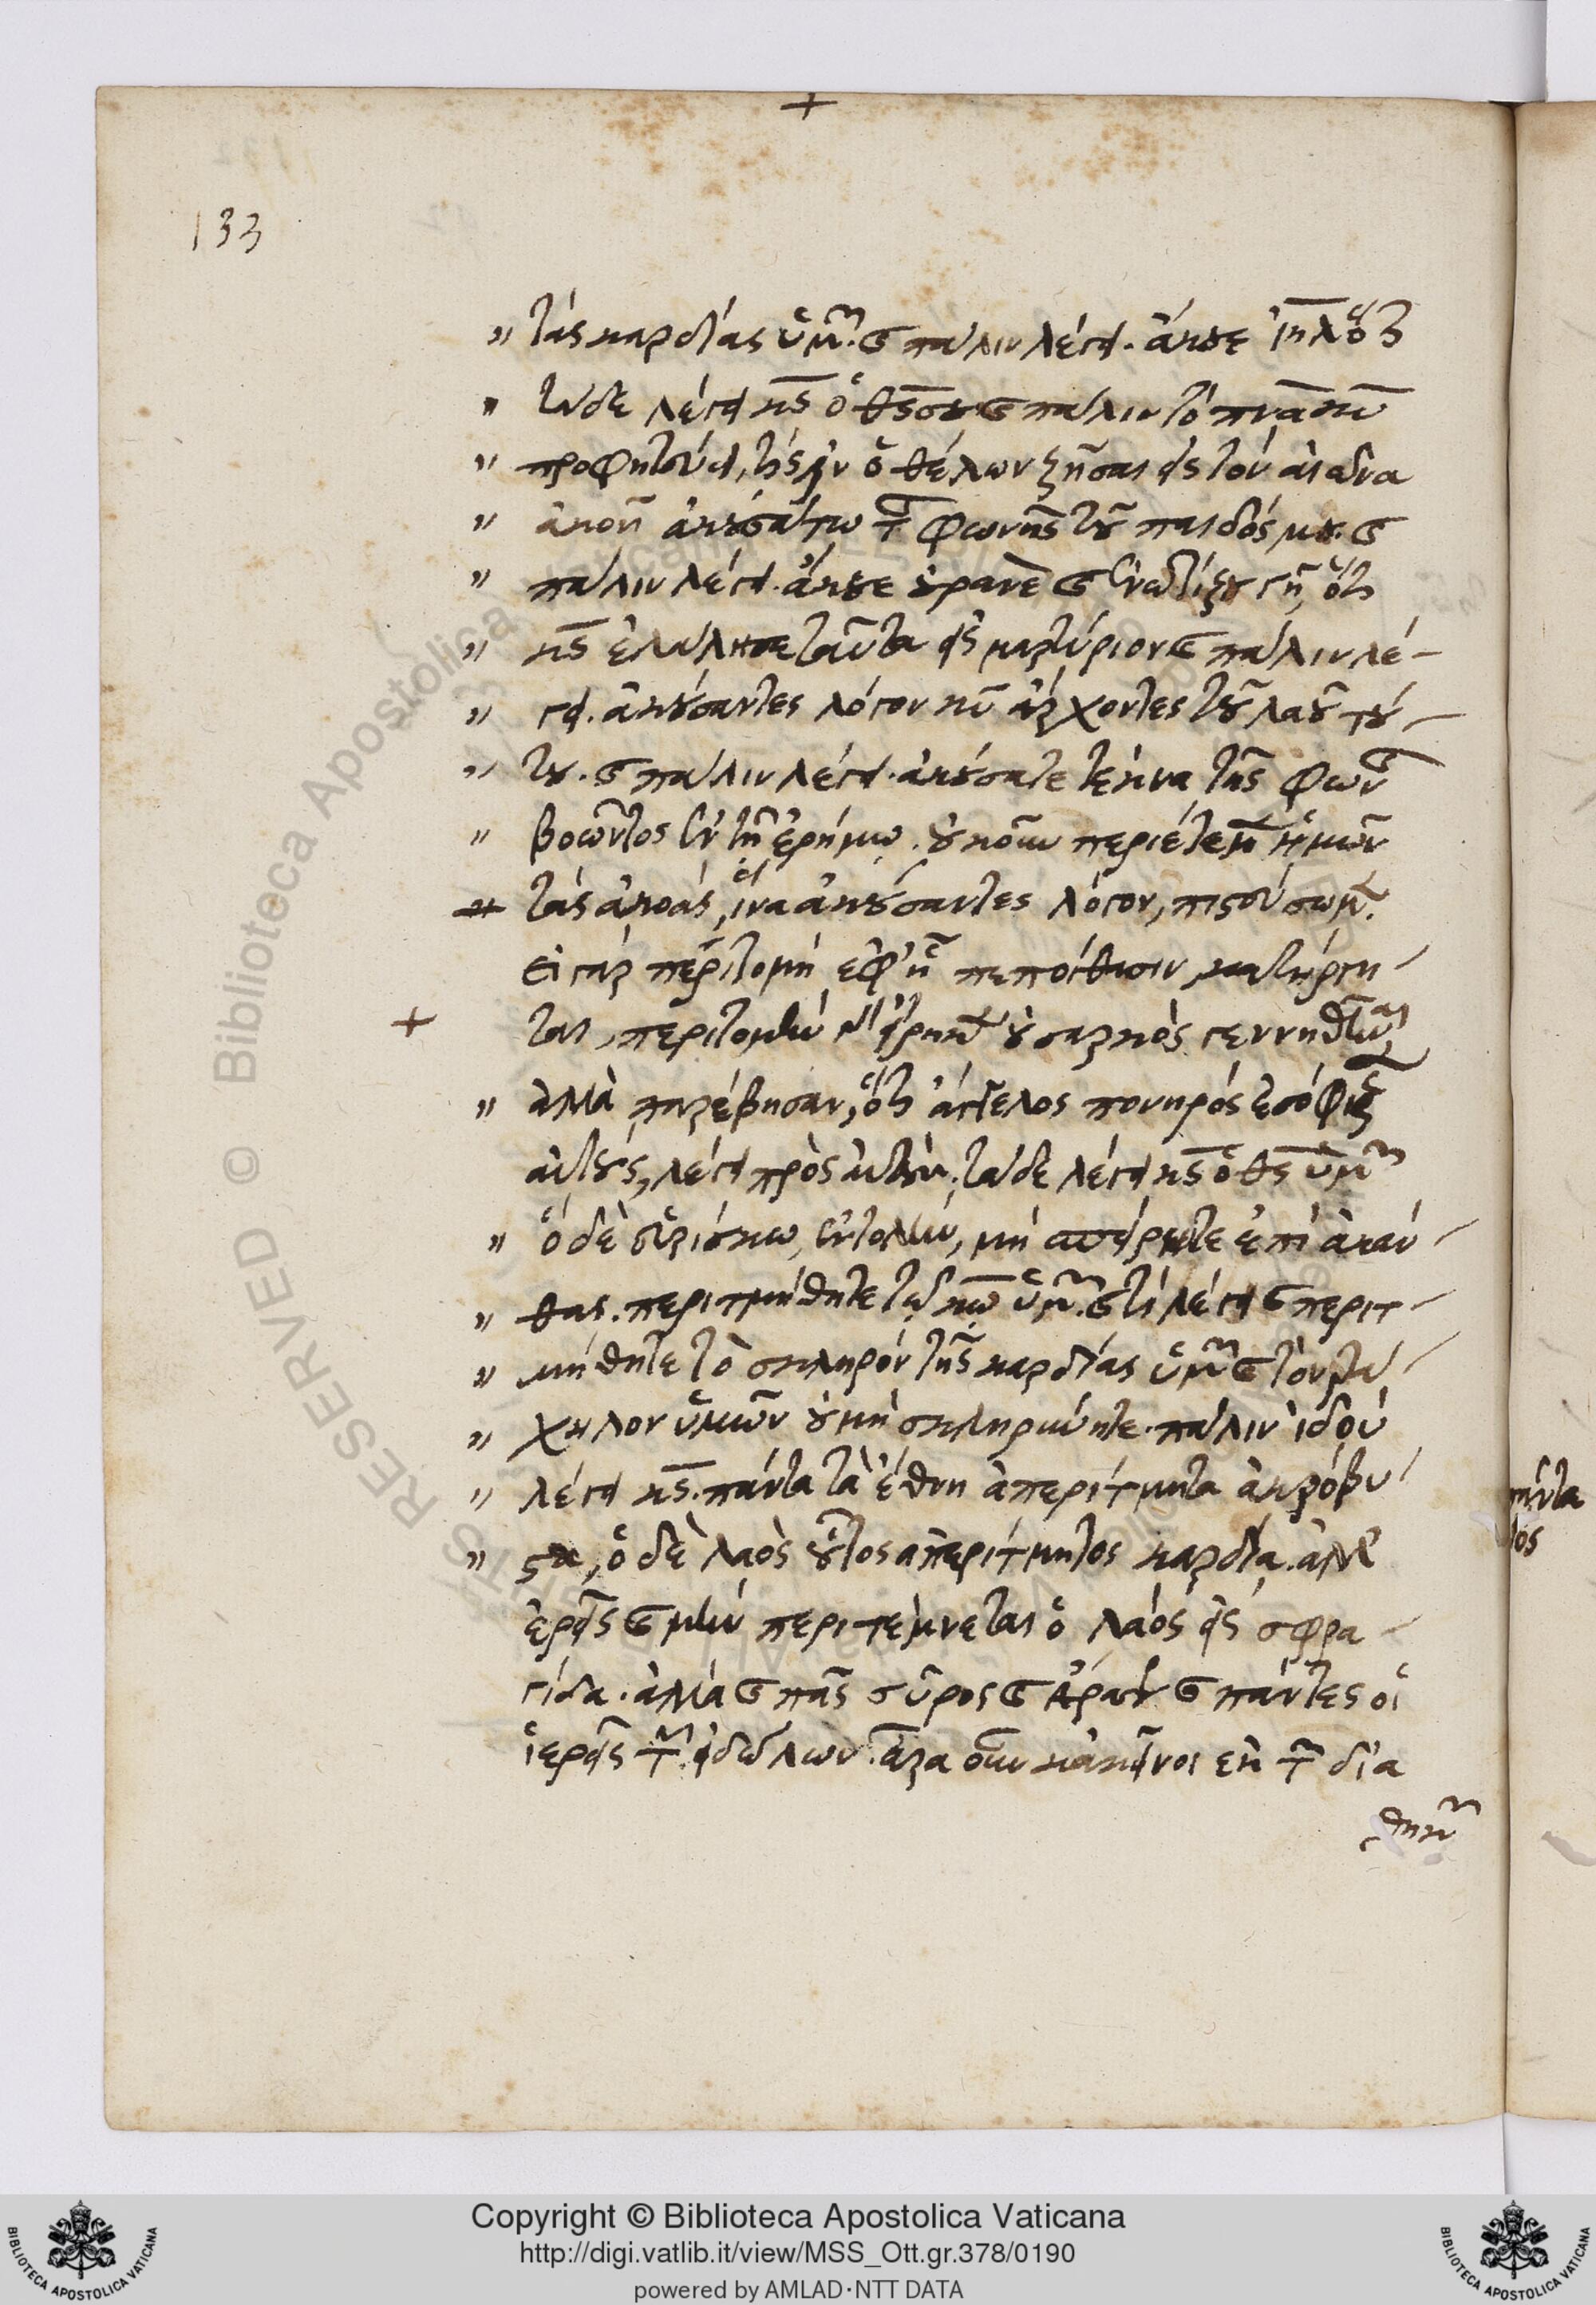 133
" τὰς καρδίας ὑμῶν. καὶ πάλιν λέγει. ἄκουε ἰηλ ὅτι
" τάδε λέγει κς ὁ θς σου καὶ πάλιν τὸ πνα κυ
" προφητεύει, τίς ἐστιν ὁ θέλων ζῆσαι εἰς τὸν αἰῶνα
" ἀκοῇ ἀκουσάτω τῆς φωνῆς τοῦ παιδός μου. καὶ
" πάλιν λέγει. ἄκουε οὐρανὲ καὶ ἐνωτίζου γῆ, ὅτι
" κς ἐλάλησε ταῦτα εἰς μαρτύριον καὶ πάλιν λέ-
" γει. ἀκούσαντες λόγον κυ ἄρχοντες τοῦ λαοῦ τού-
" του. καὶ πάλιν λέγει. ἀκούσατε τέκνα τῆς φωνῆς
" βοῶντος ἐν τῇ ἐρήμῳ. οὐκοῦν περιέτεμεν ἡμῶν
τὰς ἀκοάς, ἵνα ἀκούσαντες λόγον, πιστεύσωμεν.
εἰ γὰρ περιτομή ἐφ' ᾗ πεποίθασιν, κατήργη-
+ ται, περιτομὴν εἴρηκεν οὐ σαρκὸς γεννηθῆναι
" ἀλλὰ παρέβησαν, ὅτι ἄγγελος πονηρὸς ἐσόφιζεν
αὐτούς, λέγει πρὸς αὐτούς. τάδε λέγει κς ὁ θς ὑμῶν
" ὁ δὲ εὑρίσκω ἐντολήν, μὴ σπείρητε ἐπὶ ἀκάν-
" θας. περιτμήθητε τῷ κω ὑμῶν. καὶ τί λέγει καὶ περιτ-
" μήθητε τὸ σκληρὸν τῆς καρδίας ὑμῶν καὶ τὸν τρά-
" χηλον ὑμῶν οὐ μὴ σκληρύνητε. πάλιν ἰδού
" λέγει κς. πάντα τὰ ἔθνη ἀπερίτμητα ἀκρόβυ-
" στα, ὁ δὲ λαὸς οὗτος ἀπερίτμητος καρδίᾳ. ἀλλ'
ἐρεῖς καὶ μὴν περιτέμνεται ὁ λαός εἰς σφρα-
γίδα. ἀλλὰ καὶ πᾶς σύρος καὶ ἄραψ καὶ πάντες οἱ
ἱερεῖς τῶν εἰδώλων. ἄρα οὖν κἀκεῖνοι ἐκ τῶν δια
θηκῶν
Copyright © Biblioteca Apostolica Vaticana
http://digi.vatlib.it/view/MSS_Ott.gr.378/0190
powered by AMLAD·NTT DATA